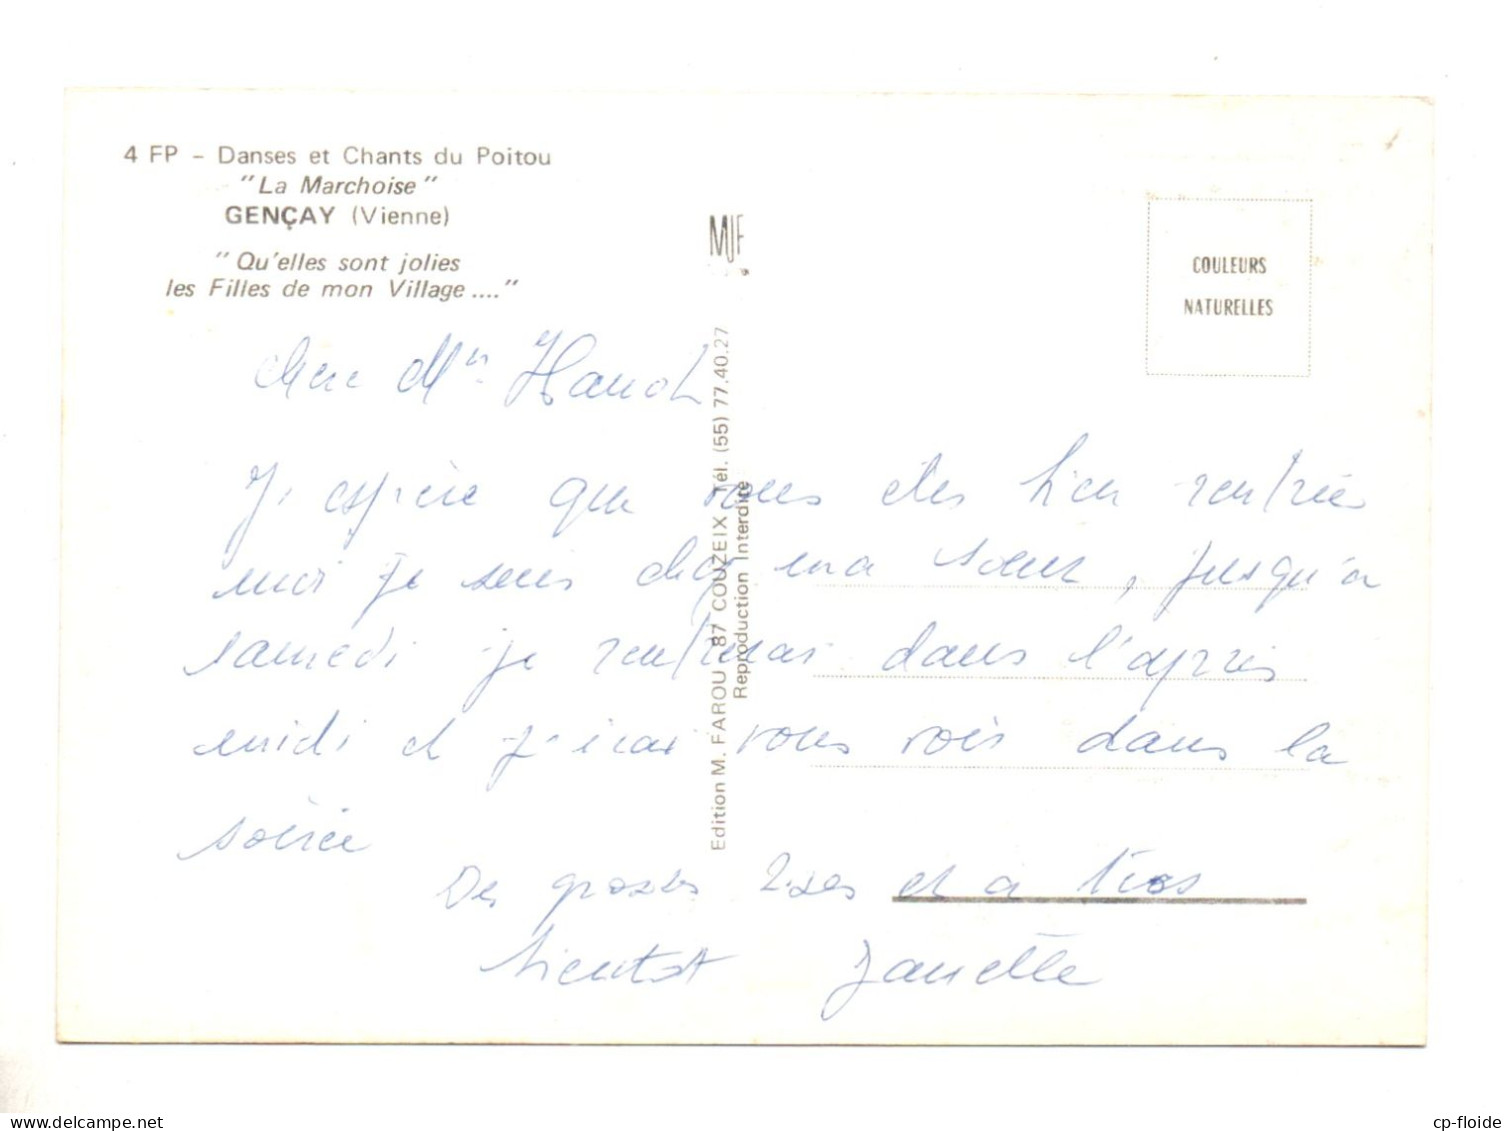 4 FP - Danses et Chants du Poitou
"La Marchoise"
GENÇAY (Vienne)
"Qu'elles sont jolies
les Filles de mon Village...."
MJF
COULEURS
NATURELLES
Edition M. FAROU 87 COUZEIX Tél. (55) 77.40.27
Reproduction Interdite
chère Mme
J'espère que vous êtes bien rentrée
moi je suis chez ma soeur, jusqu'à
samedi je rentrerai dans l'après
midi et j'irai vous voir dans la
soirée
Des grosses bises et a très
bientot Janette
cp-floide
www.delcampe.net